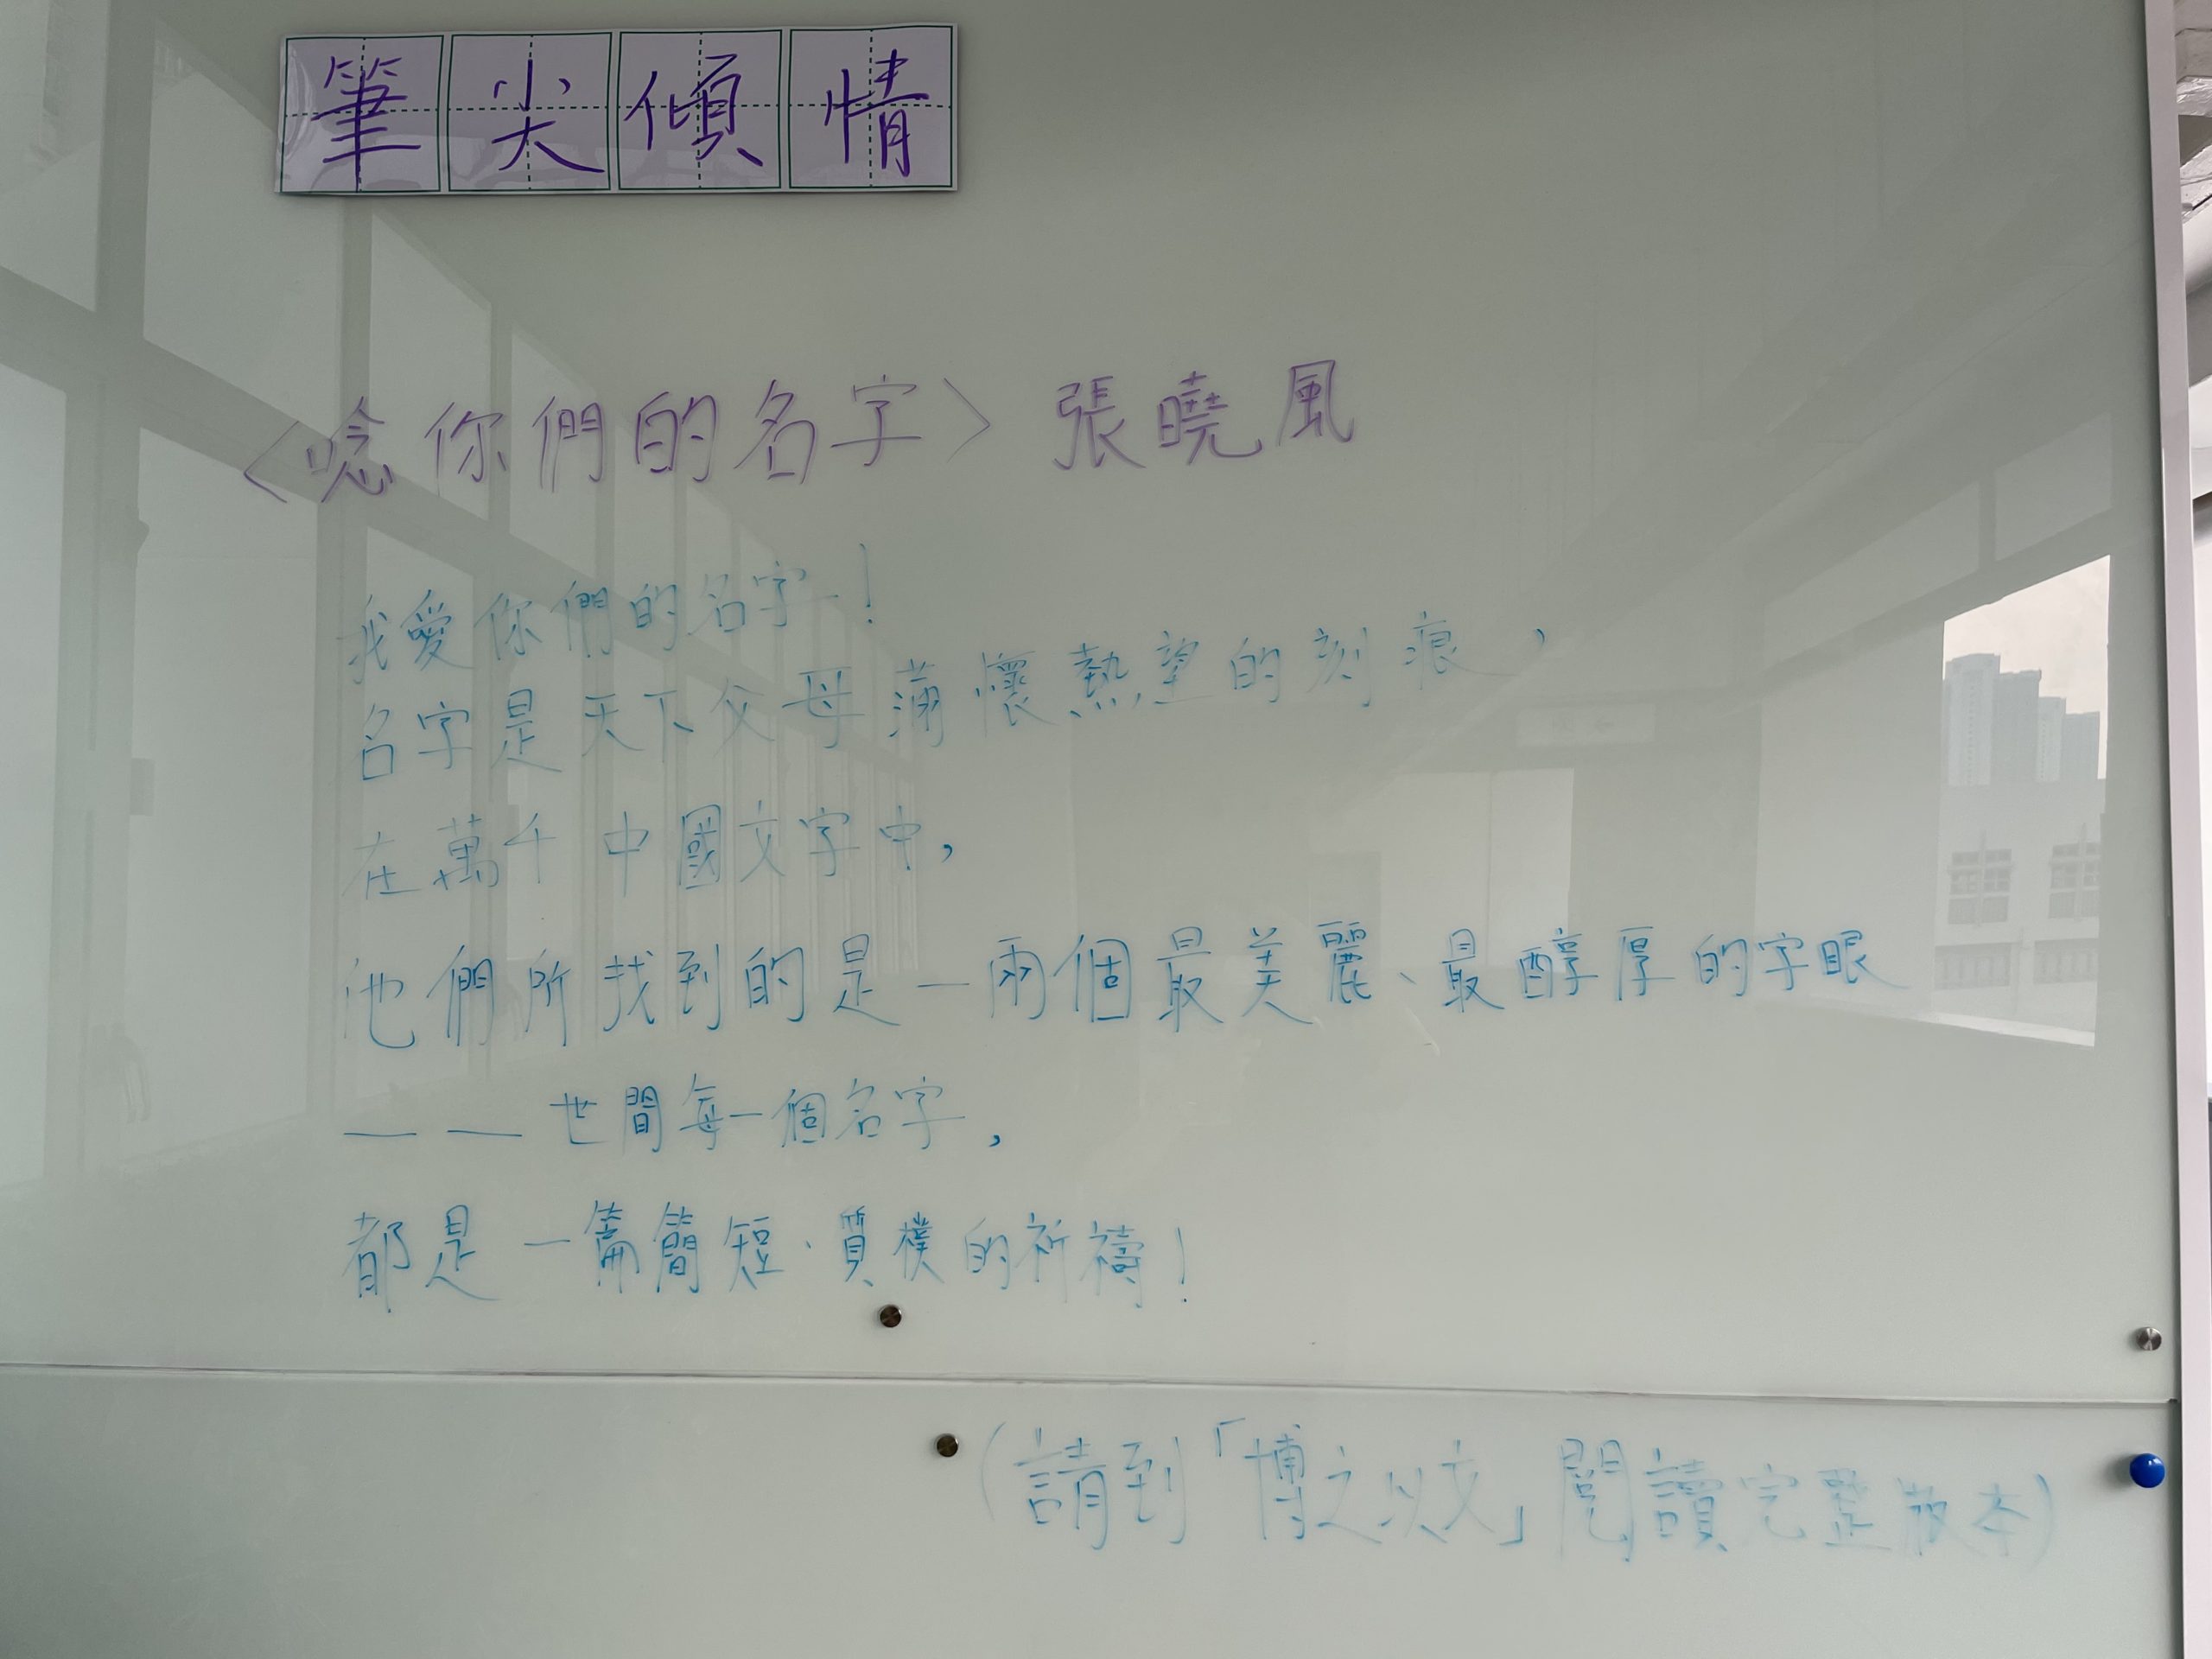 筆尖傾情
〈唸你們的名字〉張曉風
我愛你們的名字！
名字是天下父母滿懷熱望的刻痕，
在萬千中國文字中，
他們所找到的是一兩個最美麗、最醇厚的字眼
——世間每一個名字，
都是一篇簡短、質樸的祈禱！
（請到「博之以文」閱讀完整版本）